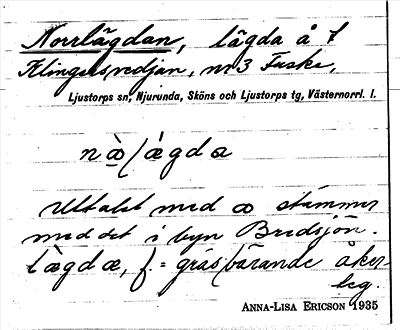 Norrlägdan, lägda å f
Klingersvedjan, nr 3 Fuske,
Ljustorps sn, Njurunda, Sköns och Ljustorps tg, Västernorrl. l.
Uttalet med æ stämmer
med det i byn Bredsjön.
lægdæ, f. = gräsbärande åker
leg.
ANNA-LISA ERICSON 1935